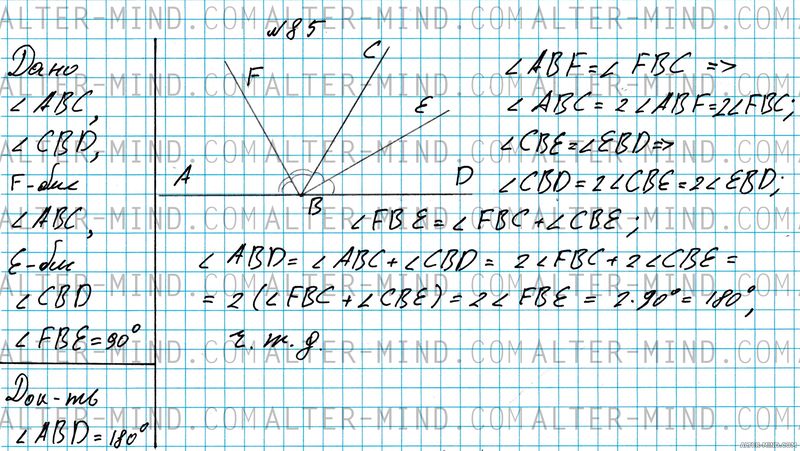 №85
Дано
∠ABC,
∠CBD,
F-бис
∠ABC,
E-бис
∠CBD
∠FBE=90°
Док-ть
∠ABD=180°
F
C
E
A
B
D
∠ABF=∠FBC =>
∠ABC=2∠ABF=2∠FBC;
∠CBE=∠EBD=>
∠CBD=2∠CBE=2∠EBD;
∠FBE=∠FBC+∠CBE;
∠ABD=∠ABC+∠CBD=2∠FBC+2∠CBE=
=2(∠FBC+∠CBE)=2∠FBE=2·90°=180°,
ч.т.д.
ALTER-MIND.COM